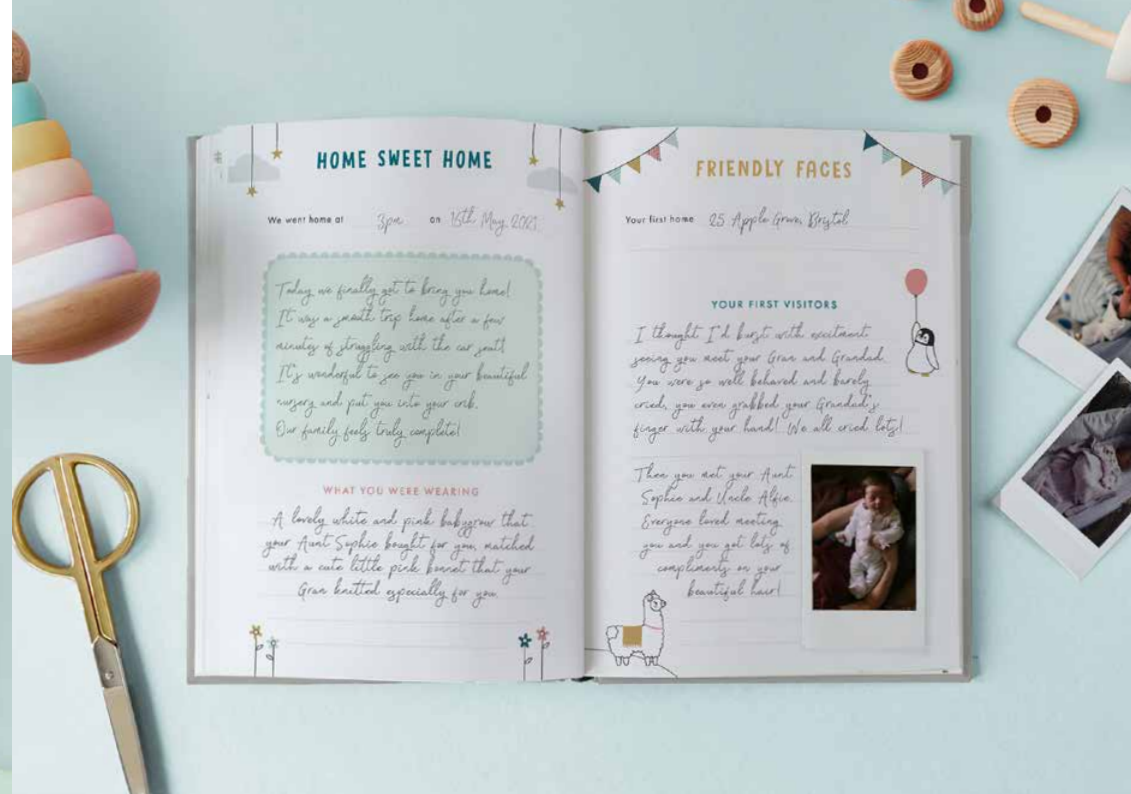 HOME SWEET HOME
We went home at 3pm on 16th May, 2021
Today we finally got to bring you home!
It was a smooth trip home after a few
minutes of struggling with the car seat!
It's wonderful to see you in your beautiful
nursery and put you into your crib.
Our family feels truly complete!
WHAT YOU WERE WEARING
A lovely white and pink babygrow that
your Aunt Sophie bought for you, matched
with a cute little pink bonnet that your
Gran knitted especially for you.
FRIENDLY FACES
Your first home 25 Apple Grove, Bristol
YOUR FIRST VISITORS
I thought I'd burst with excitment
seeing you meet your Gran and Grandad.
You were so well behaved and barely
cried, you even grabbed your Grandad's
finger with your hand! We all cried lots!
Then you met your Aunt
Sophie and Uncle Alfie.
Everyone loved meeting
you and you got lots of
compliments on your
beautiful hair!